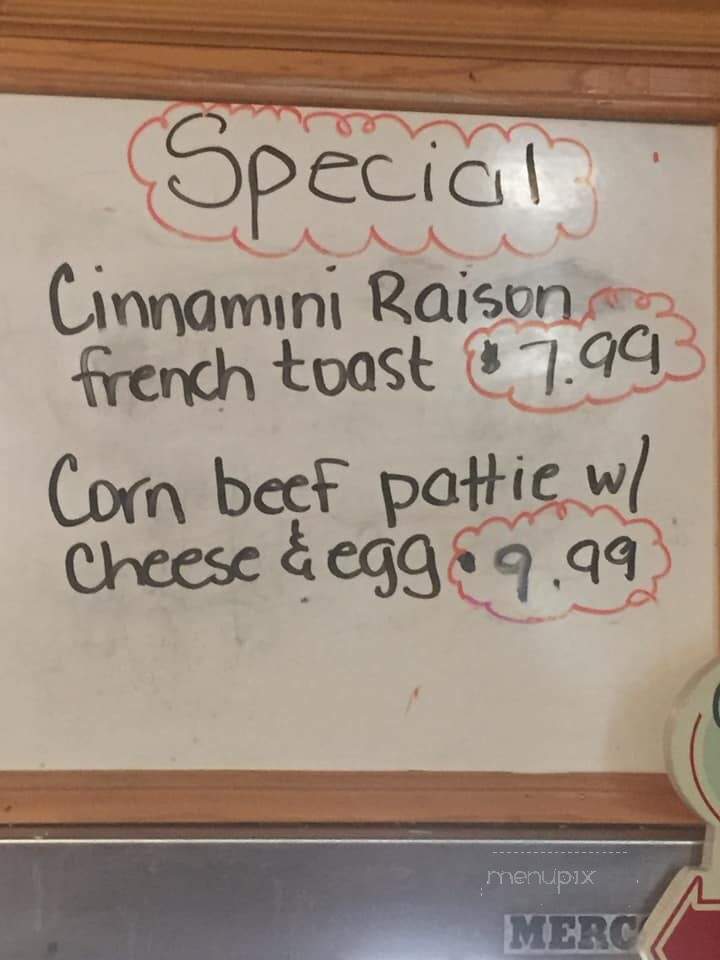 Special
Cinnamini Raison
french toast $7.99
Corn beef pattie w/
cheese & egg • 9.99
menupix
MERC